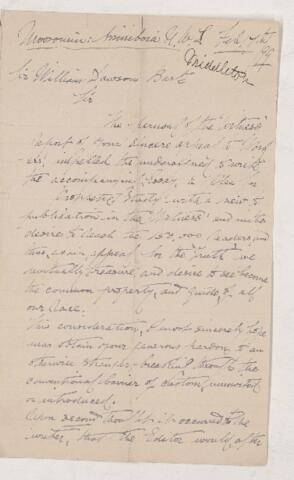 Moosomin: Assiniboia N. W. T. Feb. 7th
Middleton
Sir William Dawson Bart
Sir
The perusal of the "Witness"
Report of Your Sincere appeal to
impelled the undersigned to write
the accompanying Essay, a "Plea for
Prophetic Study" with a view to
publication in the "Witness" and with a
desire to reach the readers and
thus, again appeal for the "Truth" we
mutually treasure, and desire to see become
the common property, and Guide, of all
our Race.
This consideration, I most sincerely hope
may obtain your generous pardon to an
otherwise stranger breaking through the
conventional barrier of Custom, uninvited
or introduced.
Upon second thought it occurred to the
writer, that the Editor would after